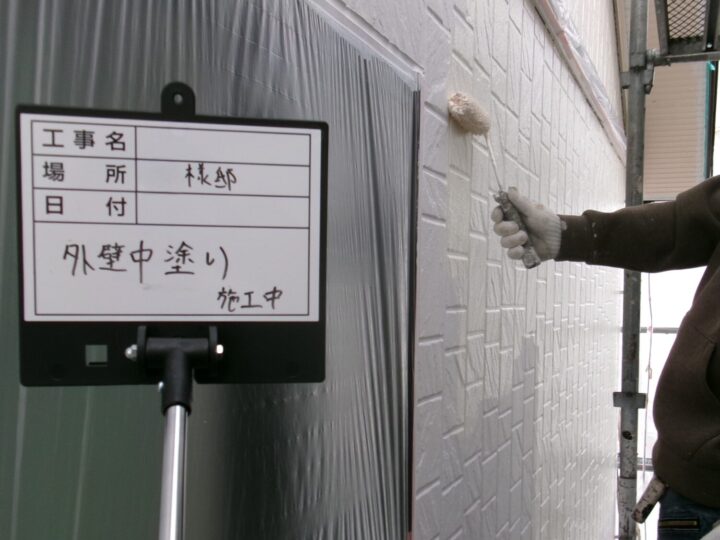 工事名
場所 様邸
日付
外壁中塗り
施工中